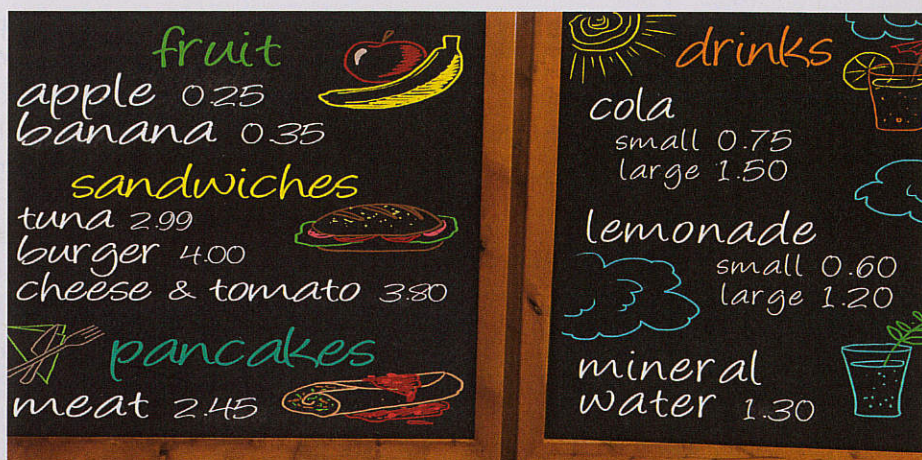 fruit
apple 0.25
banana 0.35
sandwiches
tuna 2.99
burger 4.00
cheese & tomato 3.80
pancakes
meat 2.45
drinks
cola
small 0.75
large 1.50
lemonade
small 0.60
large 1.20
mineral
water 1.30